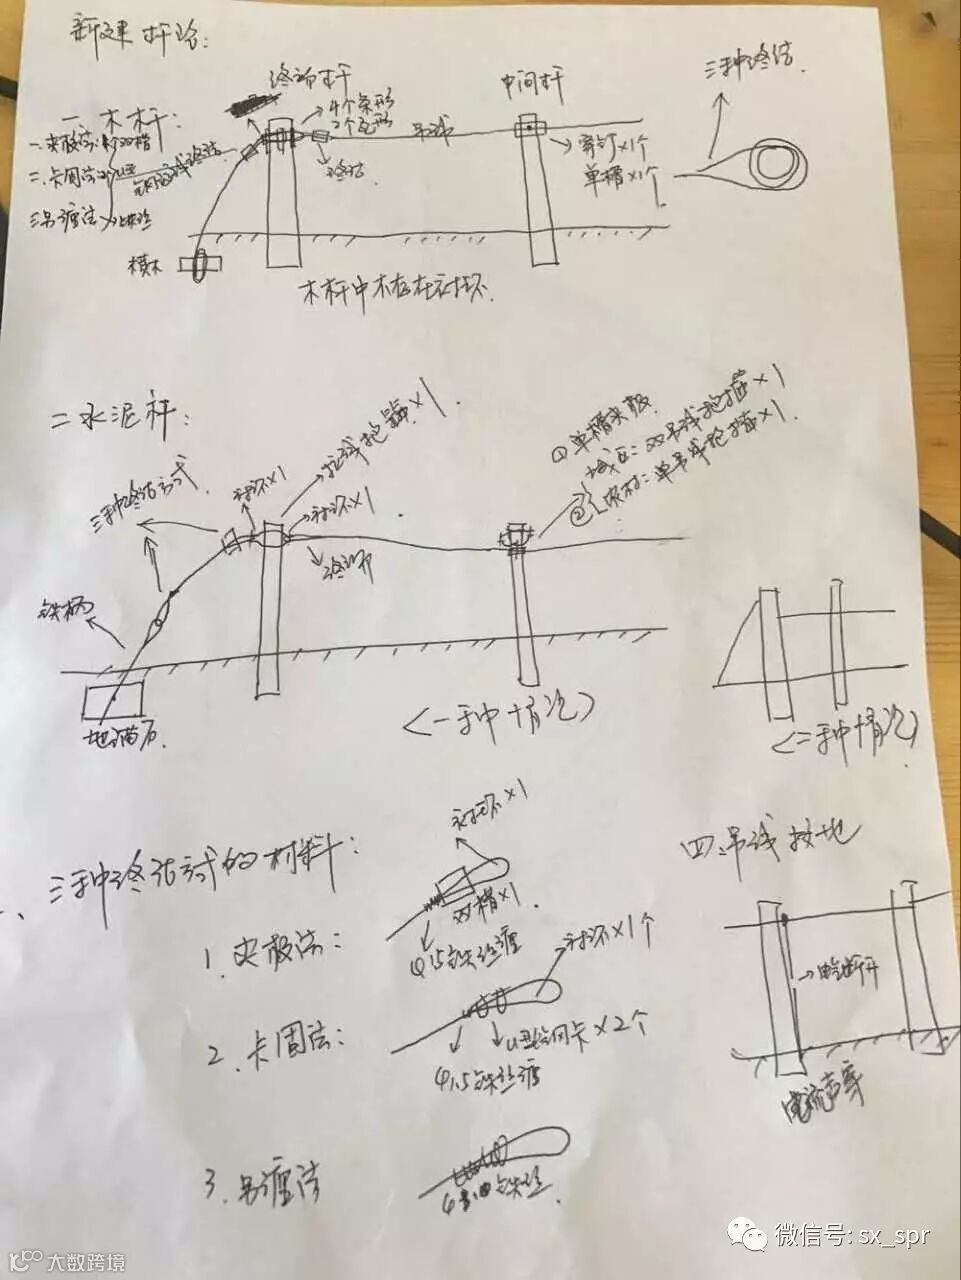 新建杆路:
终端杆
中间杆
三种终结
一、木杆:
4个条形
2个瓦形
吊线
一、夹板法:
双槽
二、卡固法
终结
穿钉×1个
单槽×1个
三、另缠法
横木
木杆中不存在衬环
二水泥杆:
三种终结方式
衬环×1
拉线抱箍×1
衬环×1
①单槽夹板
城区:双吊线抱箍×1
②农村:单吊线抱箍×1
铁柄
地锚石
<一种情况>
<二种情况>
三种终结方式的材料:
衬环×1
四、吊线接地
1.夹板法:
双槽×1
φ1.5铁丝缠
衬环×1个
→断开
2.卡固法:
U型钢卡×2个
φ1.5铁丝缠
3.另缠法
铁丝
微信号: sx_spr
大数跨境